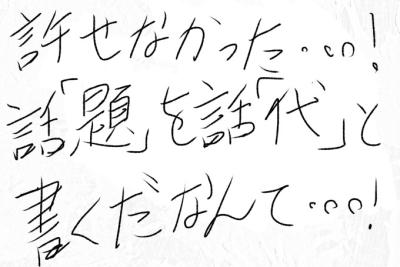 許せなかった…!
話「題」を話「代」と
書くだなんて…!